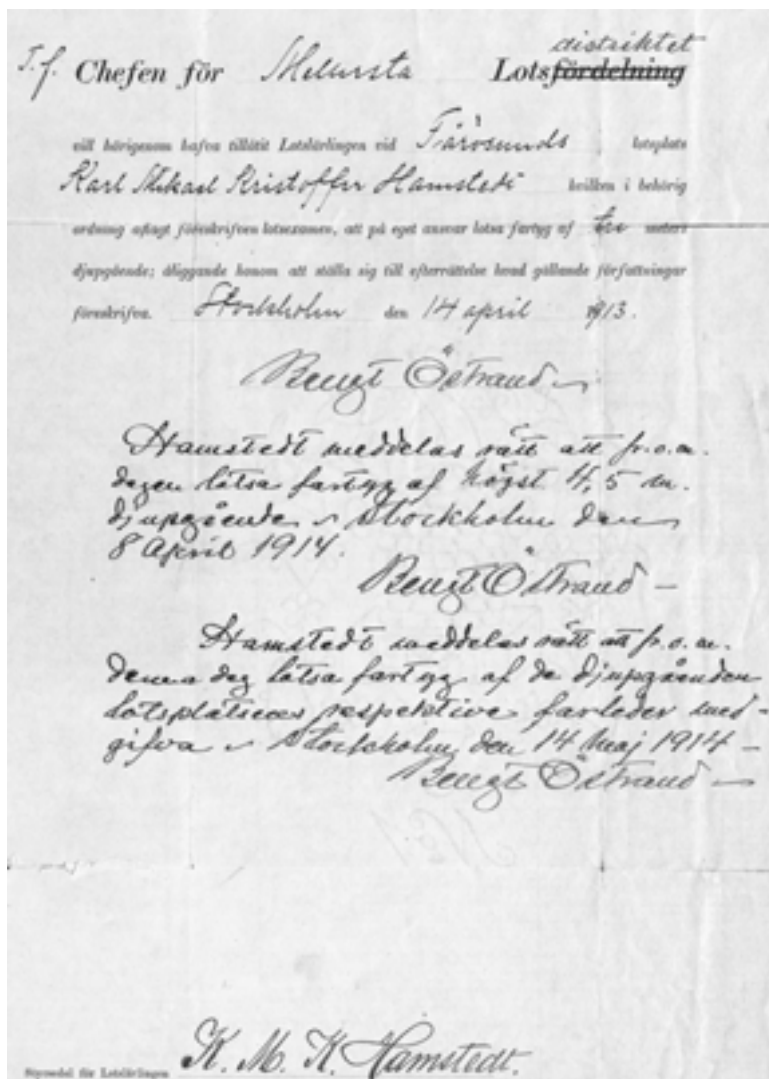 distriktet
T.f. Chefen för Mellersta Lotsfördelning
vill härigenom hafva tillåtit Lotslärlingen vid Fårösunds lotsplats
Karl Mikael Kristoffer Hamstedt hvilken i behörig
ordning aflagt föreskrifven lotsexamen, att på eget ansvar lotsa fartyg af tre meters
djupgående; åliggande honom att ställa sig till efterrättelse hvad gällande författningar
föreskrifva. Stockholm den 14 april 1913.
Bengt Östrand
Hamstedt meddelas rätt att fr.o.m.
dagen lotsa fartyg af högst 4,5 m.
djupgående. Stockholm den
8 April 1914.
Bengt Östrand
Hamstedt meddelas rätt att fr.o.m.
denna dag lotsa fartyg af de djupgåenden
lotsplatsens respektive farleder med-
gifva. Stockholm den 14 maj 1914
Bengt Östrand
K. M. K. Hamstedt.
Styrsedel för Lotslärlingen